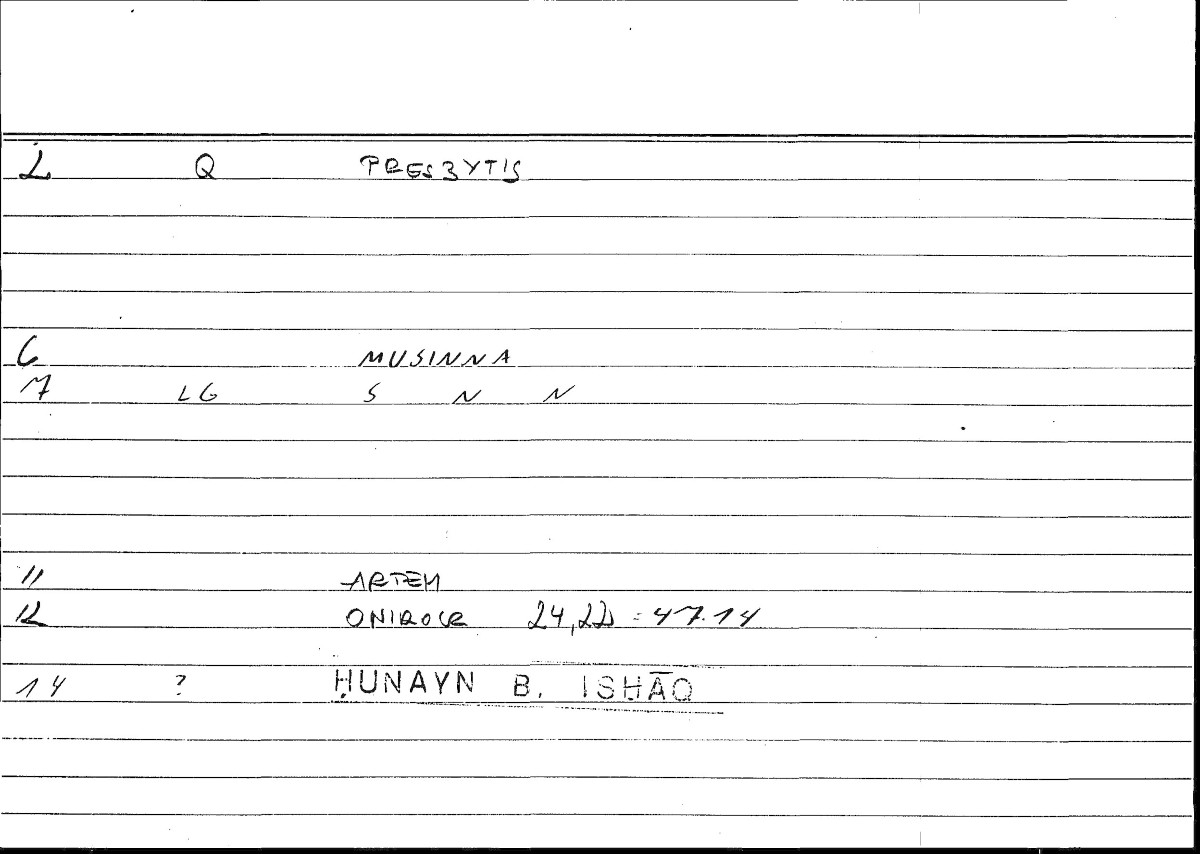 2 Q PRESBYTIS
6 MUSINNA
7 LG S N N
11 ARTEM
12 ONIROCR 24,22 = 47.14
14 ? ḤUNAYN B. ISḤĀQ